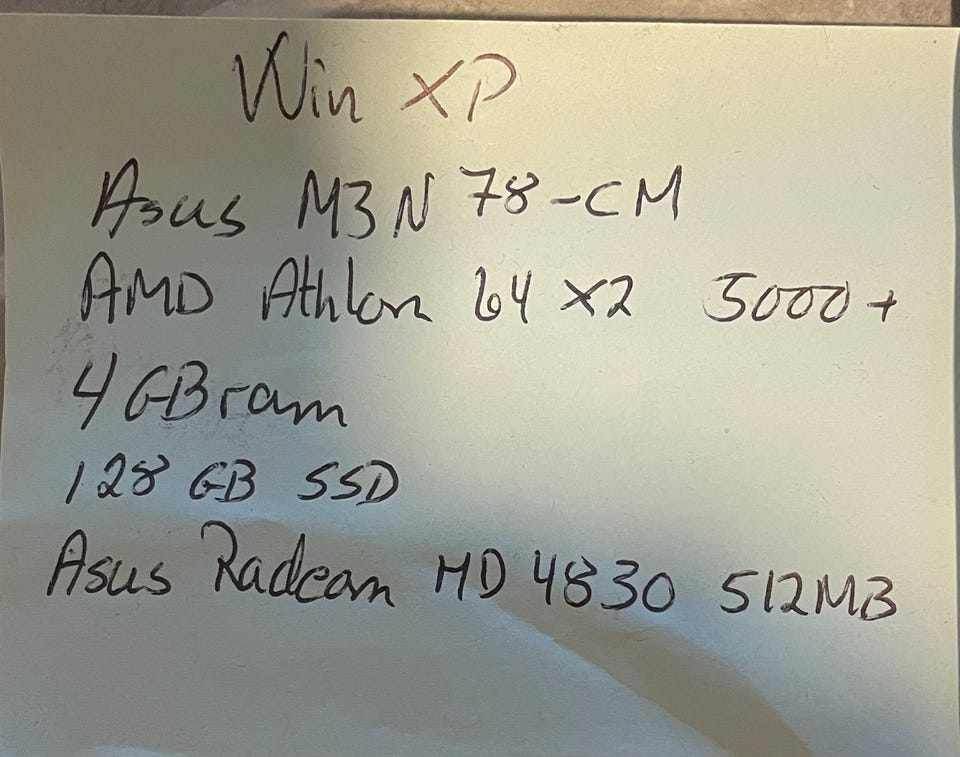 Win XP
Asus M3N 78-CM
AMD Athlon 64 X2 5000+
4 GB ram
128 GB SSD
Asus Radeon HD 4830 512MB